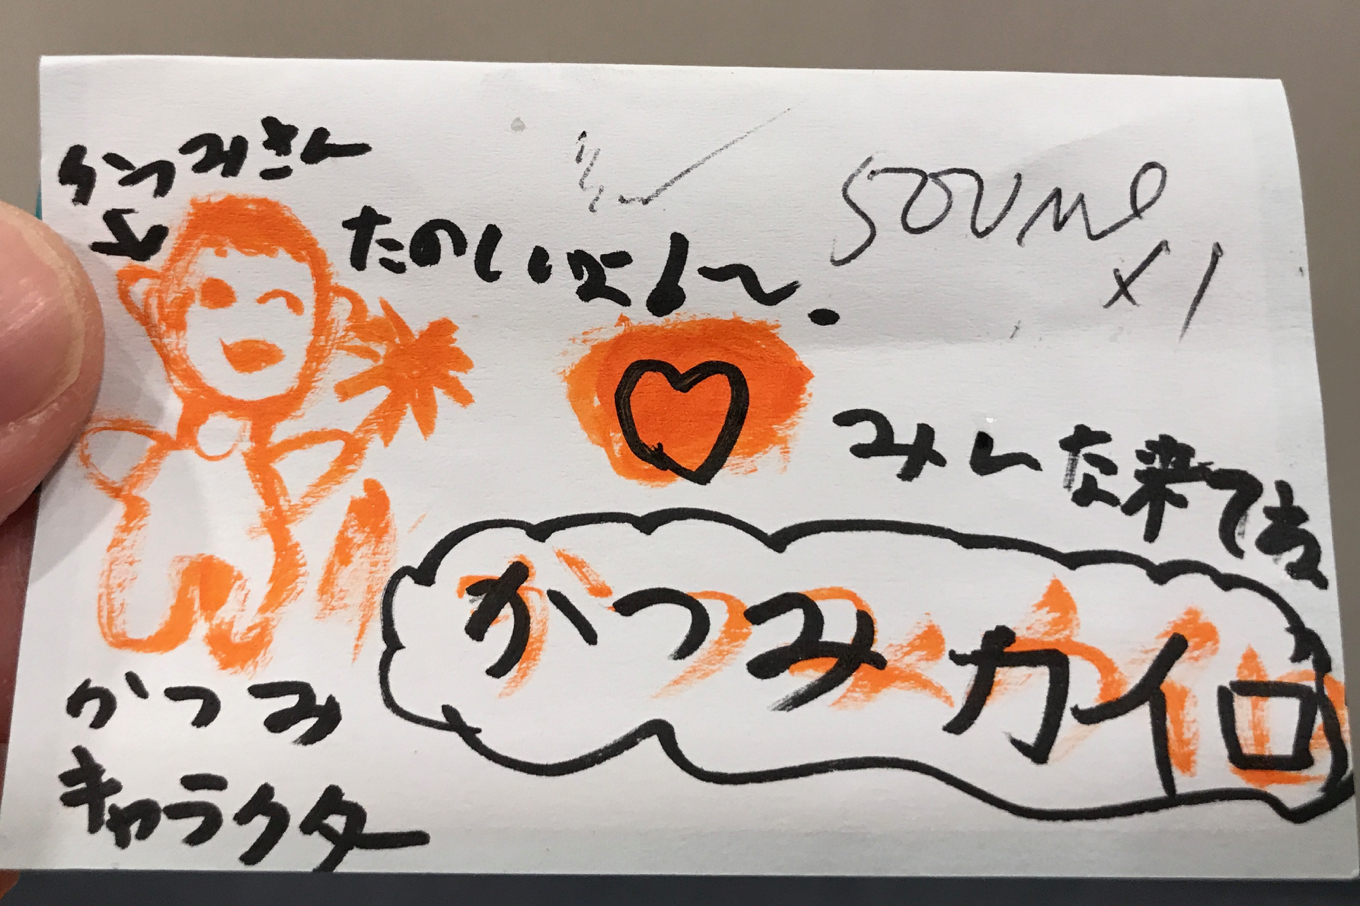 かつみさん
たのしいよ!〜.
500ml
×1
みんな来てね
かつみカイロ
かつみ
キャラクター